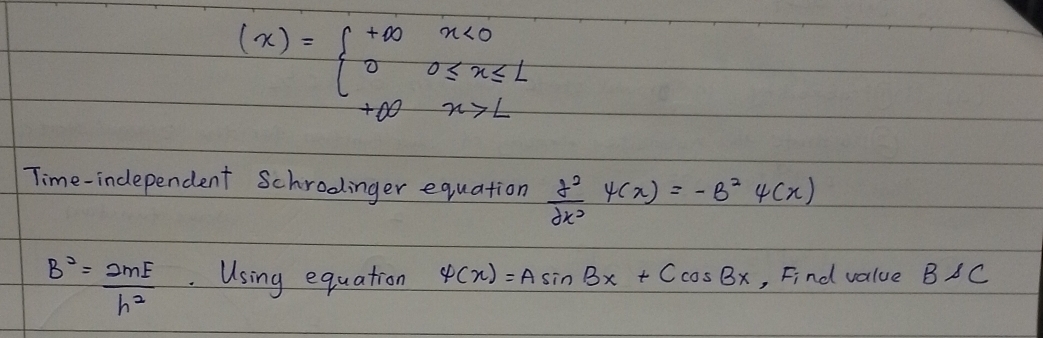 (x) = { +∞ x<0
0 0≤x≤L
+∞ x>L
Time-independent Schrodinger equation ∂²/∂x² ψ(x) = -B² ψ(x)
B² = 2mE/h² . Using equation ψ(x) = A sin Bx + C cos Bx, Find value B & C